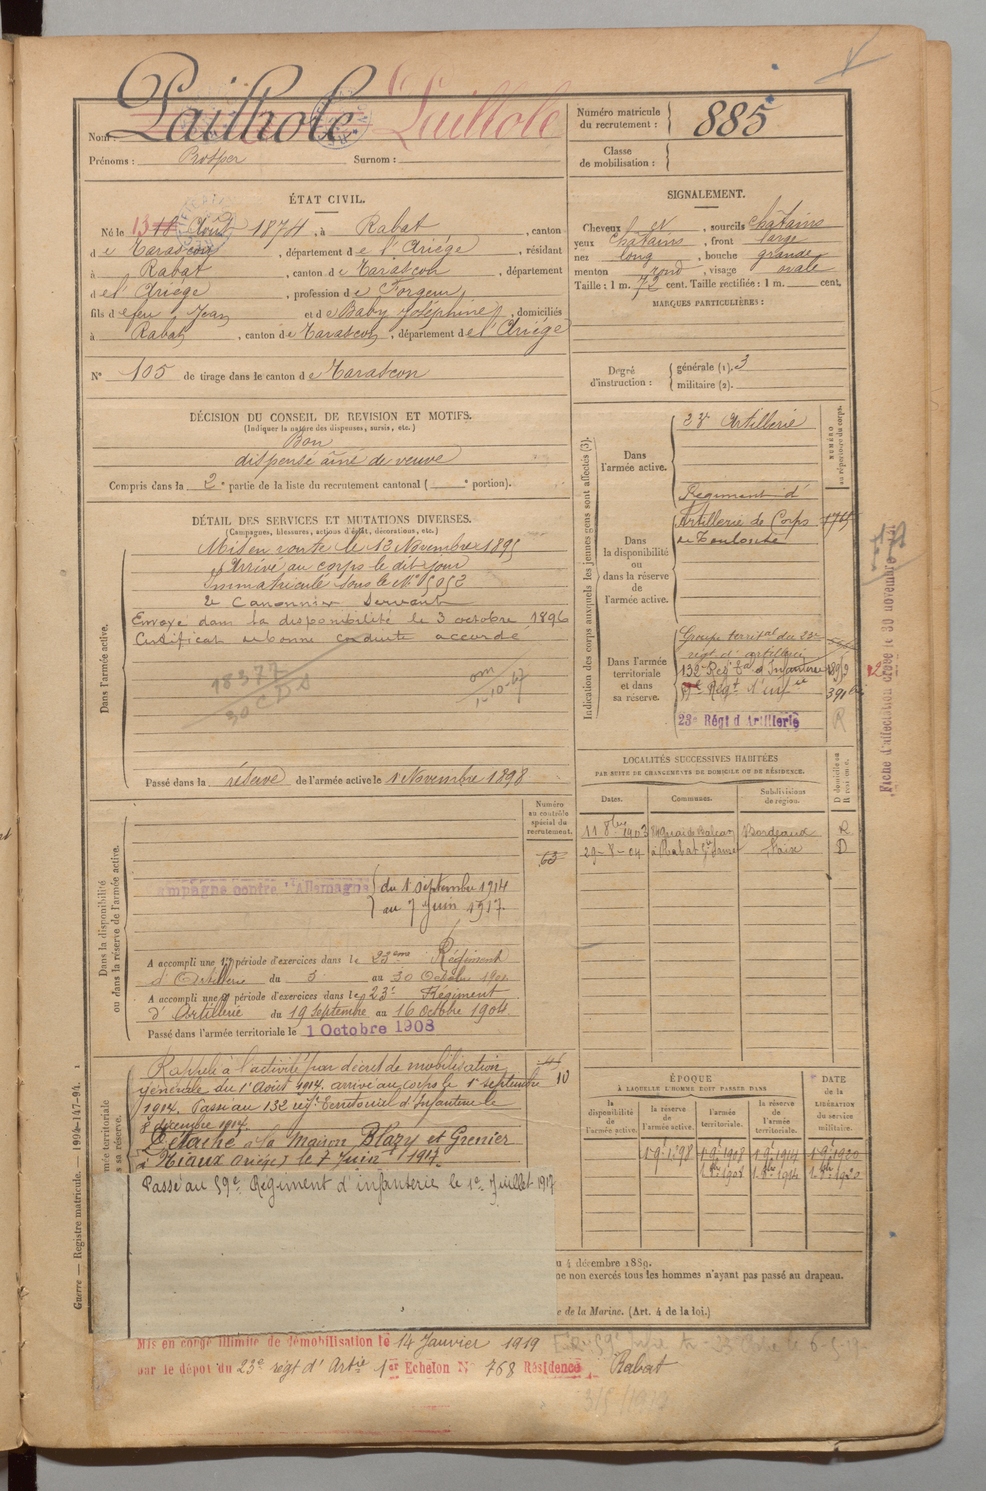 Pailhole Pailhole
Nom :
Prénoms : Prosper Surnom :
Numéro matricule du recrutement : 885
Classe de mobilisation :
ÉTAT CIVIL.
Né le 13 18 Août 1874, à Rabat, canton
de Tarascon, département de l'Ariége, résidant
à Rabat, canton de Tarascon, département
de l'Ariége, profession de Forgeur
fils de feu Jean et de Baby Joséphine, domiciliés
à Rabat, canton de Tarascon, département de l'Ariége
N° 105 de tirage dans le canton de Tarascon
SIGNALEMENT.
Cheveux et, sourcils châtains
yeux châtains, front large
nez long, bouche grande
menton rond, visage ovale
Taille : 1 m. 72 cent. Taille rectifiée : 1 m. cent.
MARQUES PARTICULIÈRES :
Degré d'instruction : générale (1). 3
militaire (2).
DÉCISION DU CONSEIL DE REVISION ET MOTIFS.
(Indiquer la nature des dispenses, sursis, etc.)
Bon
dispensé aîné de veuve
Compris dans la 2e partie de la liste du recrutement cantonal ( e portion).
DÉTAIL DES SERVICES ET MUTATIONS DIVERSES.
(Campagnes, blessures, actions d'éclat, décorations, etc.)
Dans l'armée active.
Mis en route le 13 Novembre 1895
et Arrivé au corps le dit jour
Immatriculé sous le N° 5953
2e Canonnier Servant
Envoyé dans la disponibilité le 3 octobre 1896
Certificat de bonne conduite accordé
18377
Passé dans la réserve de l'armée active le 1 Novembre 1898
Indication des corps auxquels les jeunes gens sont affectés (3).
NUMÉRO au répertoire du corps.
Dans l'armée active.
23e Artillerie
Dans la disponibilité ou dans la réserve de l'armée active.
Régiment d'
Artillerie de Corps
de Toulouse
Dans l'armée territoriale et dans sa réserve.
Groupe territal du 23e
régt d'artillerie
132e Régt tal d'Infanterie
Régt d'infie
23e Régt d'Artillerie
R
Fiche d'affectation créée le 30 novembre
LOCALITÉS SUCCESSIVES HABITÉES
PAR SUITE DE CHANGEMENTS DE DOMICILE OU DE RÉSIDENCE.
Dates. Communes. Subdivisions de région. D domicile ou R résidence.
11 8bre 1903 Bordeaux R
29-8-04 à Rabat Foix D
Numéro au contrôle spécial du recrutement.
63
Dans la disponibilité ou dans la réserve de l'armée active.
Campagne contre l'Allemagne du 1 septembre 1914
au 7 Juin 1917.
A accompli une 1e période d'exercices dans le 23ème Régiment
d'Artillerie du 3 au 30 Octobre
A accompli une 2e période d'exercices dans le 23e Régiment
d'Artillerie du 19 Septembre au 16 Octobre 1904
Passé dans l'armée territoriale le 1 Octobre 1908
Rappelé à l'activité par décret de mobilisation
générale du 1er Août 1914. arrivé au corps le 1er septembre
1914. Passé au 132e régt Territorial d'Infanterie le
8 décembre 1914.
Détaché à la maison Blazy et Grenier
à Niaux (Ariège) le 7 Juin 1917
Passé au 59e Régiment d'infanterie le 1er Juillet 1917
10
ÉPOQUE
À LAQUELLE L'HOMME DOIT PASSER DANS
la disponibilité de l'armée active. la réserve de l'armée active. l'armée territoriale. la réserve de l'armée territoriale.
DATE de la LIBÉRATION du service militaire.
u 4 décembre 1889.
ne non exercés tous les hommes n'ayant pas passé au drapeau.
e de la Marine. (Art. 4 de la loi.)
Mis en congé illimité de démobilisation le 14 Janvier 1919
par le dépôt du 23e régt d'Artie 1er Echelon N° 768 Résidence Rabat
Guerre — Registre matricule. — 1994-147-94.